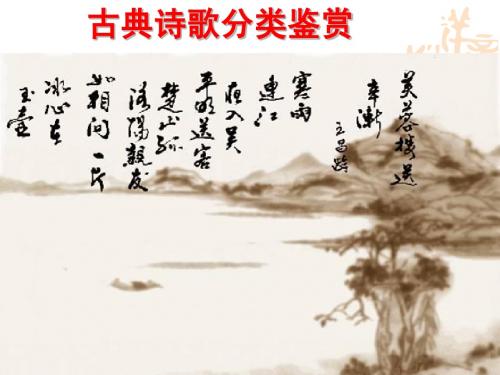 古典诗歌分类鉴赏
芙蓉楼送
辛渐
王昌龄
寒雨
連江
夜入吴
平明送客
楚山孤
洛陽親友
如相问一片
冰心在
玉壶